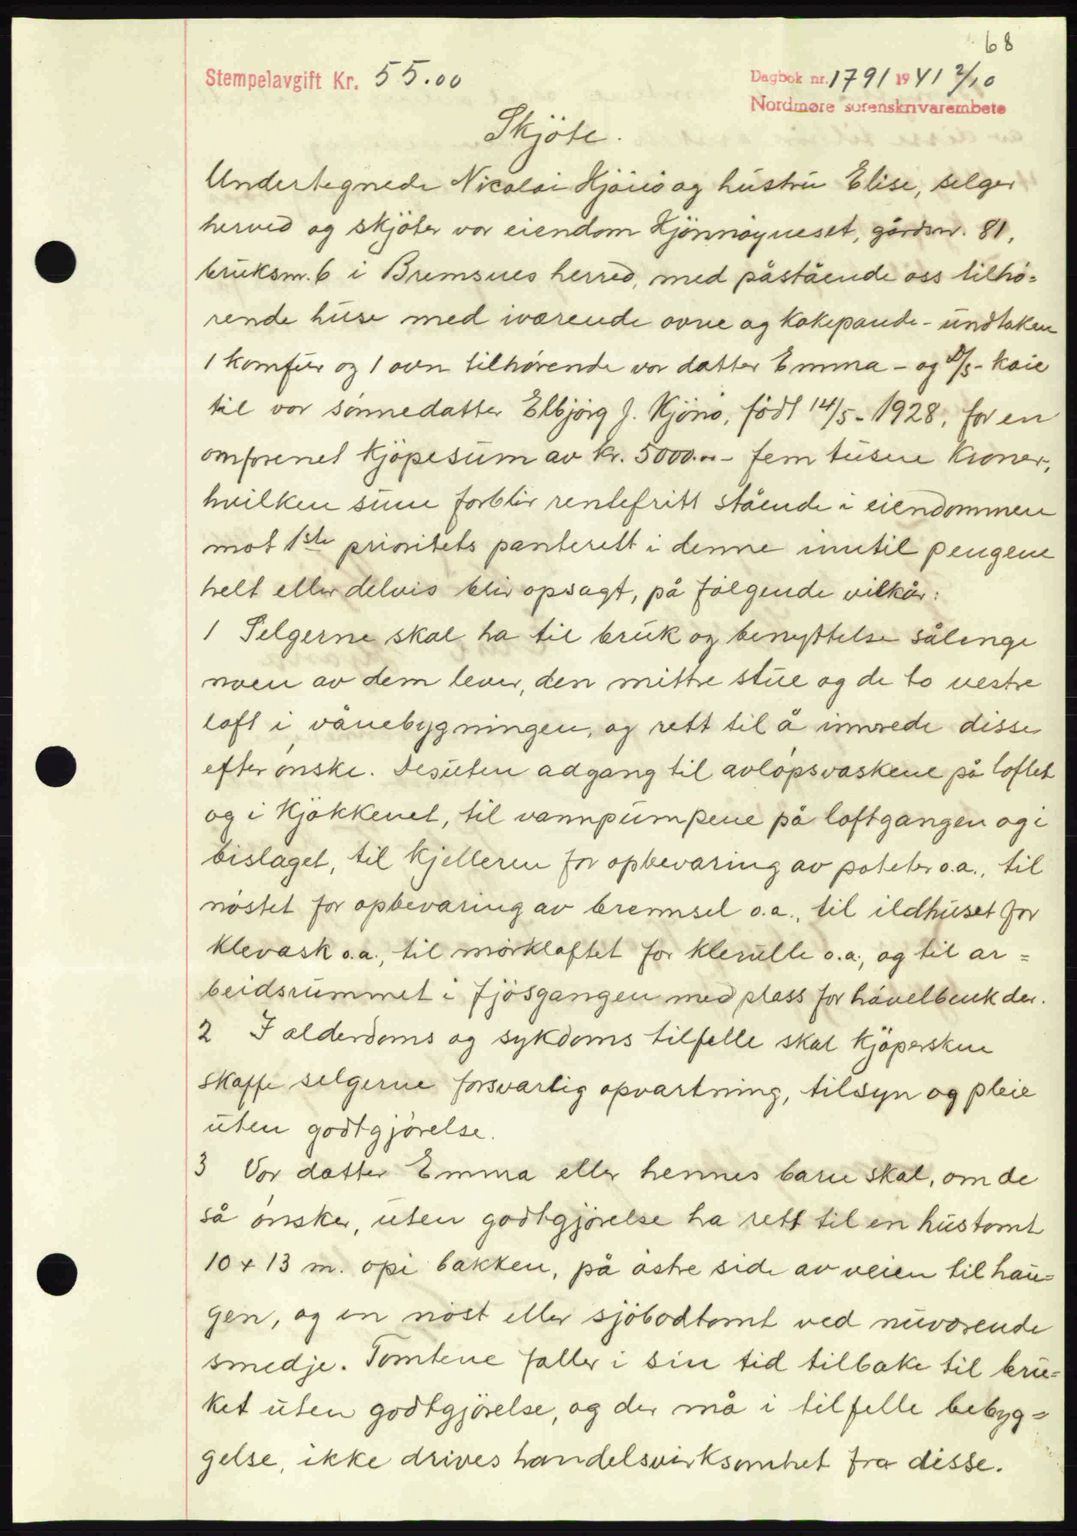 68
Stempelavgift Kr. 55.00
Dagbok nr. 1791 1941 2/10
Nordmøre sorenskrivarembete
Skjöte.
Undertegnede Nicolai Kjönö og hustru Elise, selger
herved og skjöter vor eiendom Kjönnöyneset, gårdsnr. 81,
bruksnr. 6 i Bremsnes herred, med påstående oss tilhö=
rende huse med iværende ovne og kokepande - undtaken
1 komfur og 1 ovn tilhörende vor datter Emma - og D/s - kaie
til vor sönnedatter Elbjörg J. Kjönö, födt 14/5 - 1928, for en
omforenet kjöpesum av kr. 5000.00 - fem tusene kroner,
hvilken sum forblir rentefritt stående i eiendommen
mot 1ste prioritets panterett i denne inntil pengene
helt eller delvis blir opsagt, på fölgende vilkår:
1 Selgerne skal ha til bruk og benyttelse sålenge
noen av dem lever, den mittre stue og de to vestre
loft i vånebygningen, og rett til å innrede disse
efter önske. Desuten adgang til avlöpsvaskene på loftet
og i kjökkenet, til vannpumpene på loftgangen og i
bislaget, til kjelleren for opbevaring av poteter o.a., til
nöstet for opbevaring av brennsel o.a., til ildhuset for
klevask o.a., til mörkloftet for klerulle o.a., og til ar=
beidsrummet i fjösgangen med plass for hövelbenk der.
2 I alderdoms og sykdoms tilfelle skal kjöpersken
skaffe selgerne forsvarlig opvartning, tilsyn og pleie
uten godtgjörelse.
3 Vor datter Emma eller hennes barn skal, om de
så önsker, uten godtgjörelse ha rett til en hustomt
10 x 13 m. opi bakken, på östre side av veien til hau=
gen, og en nöst eller sjöbodtomt ved nuværende
smedje. Tomtene faller i sin tid tilbake til bru=
ket uten godtgjörelse, og der må i tilfelle bebyg=
gelse, ikke drives handelsvirksomhet fra disse.